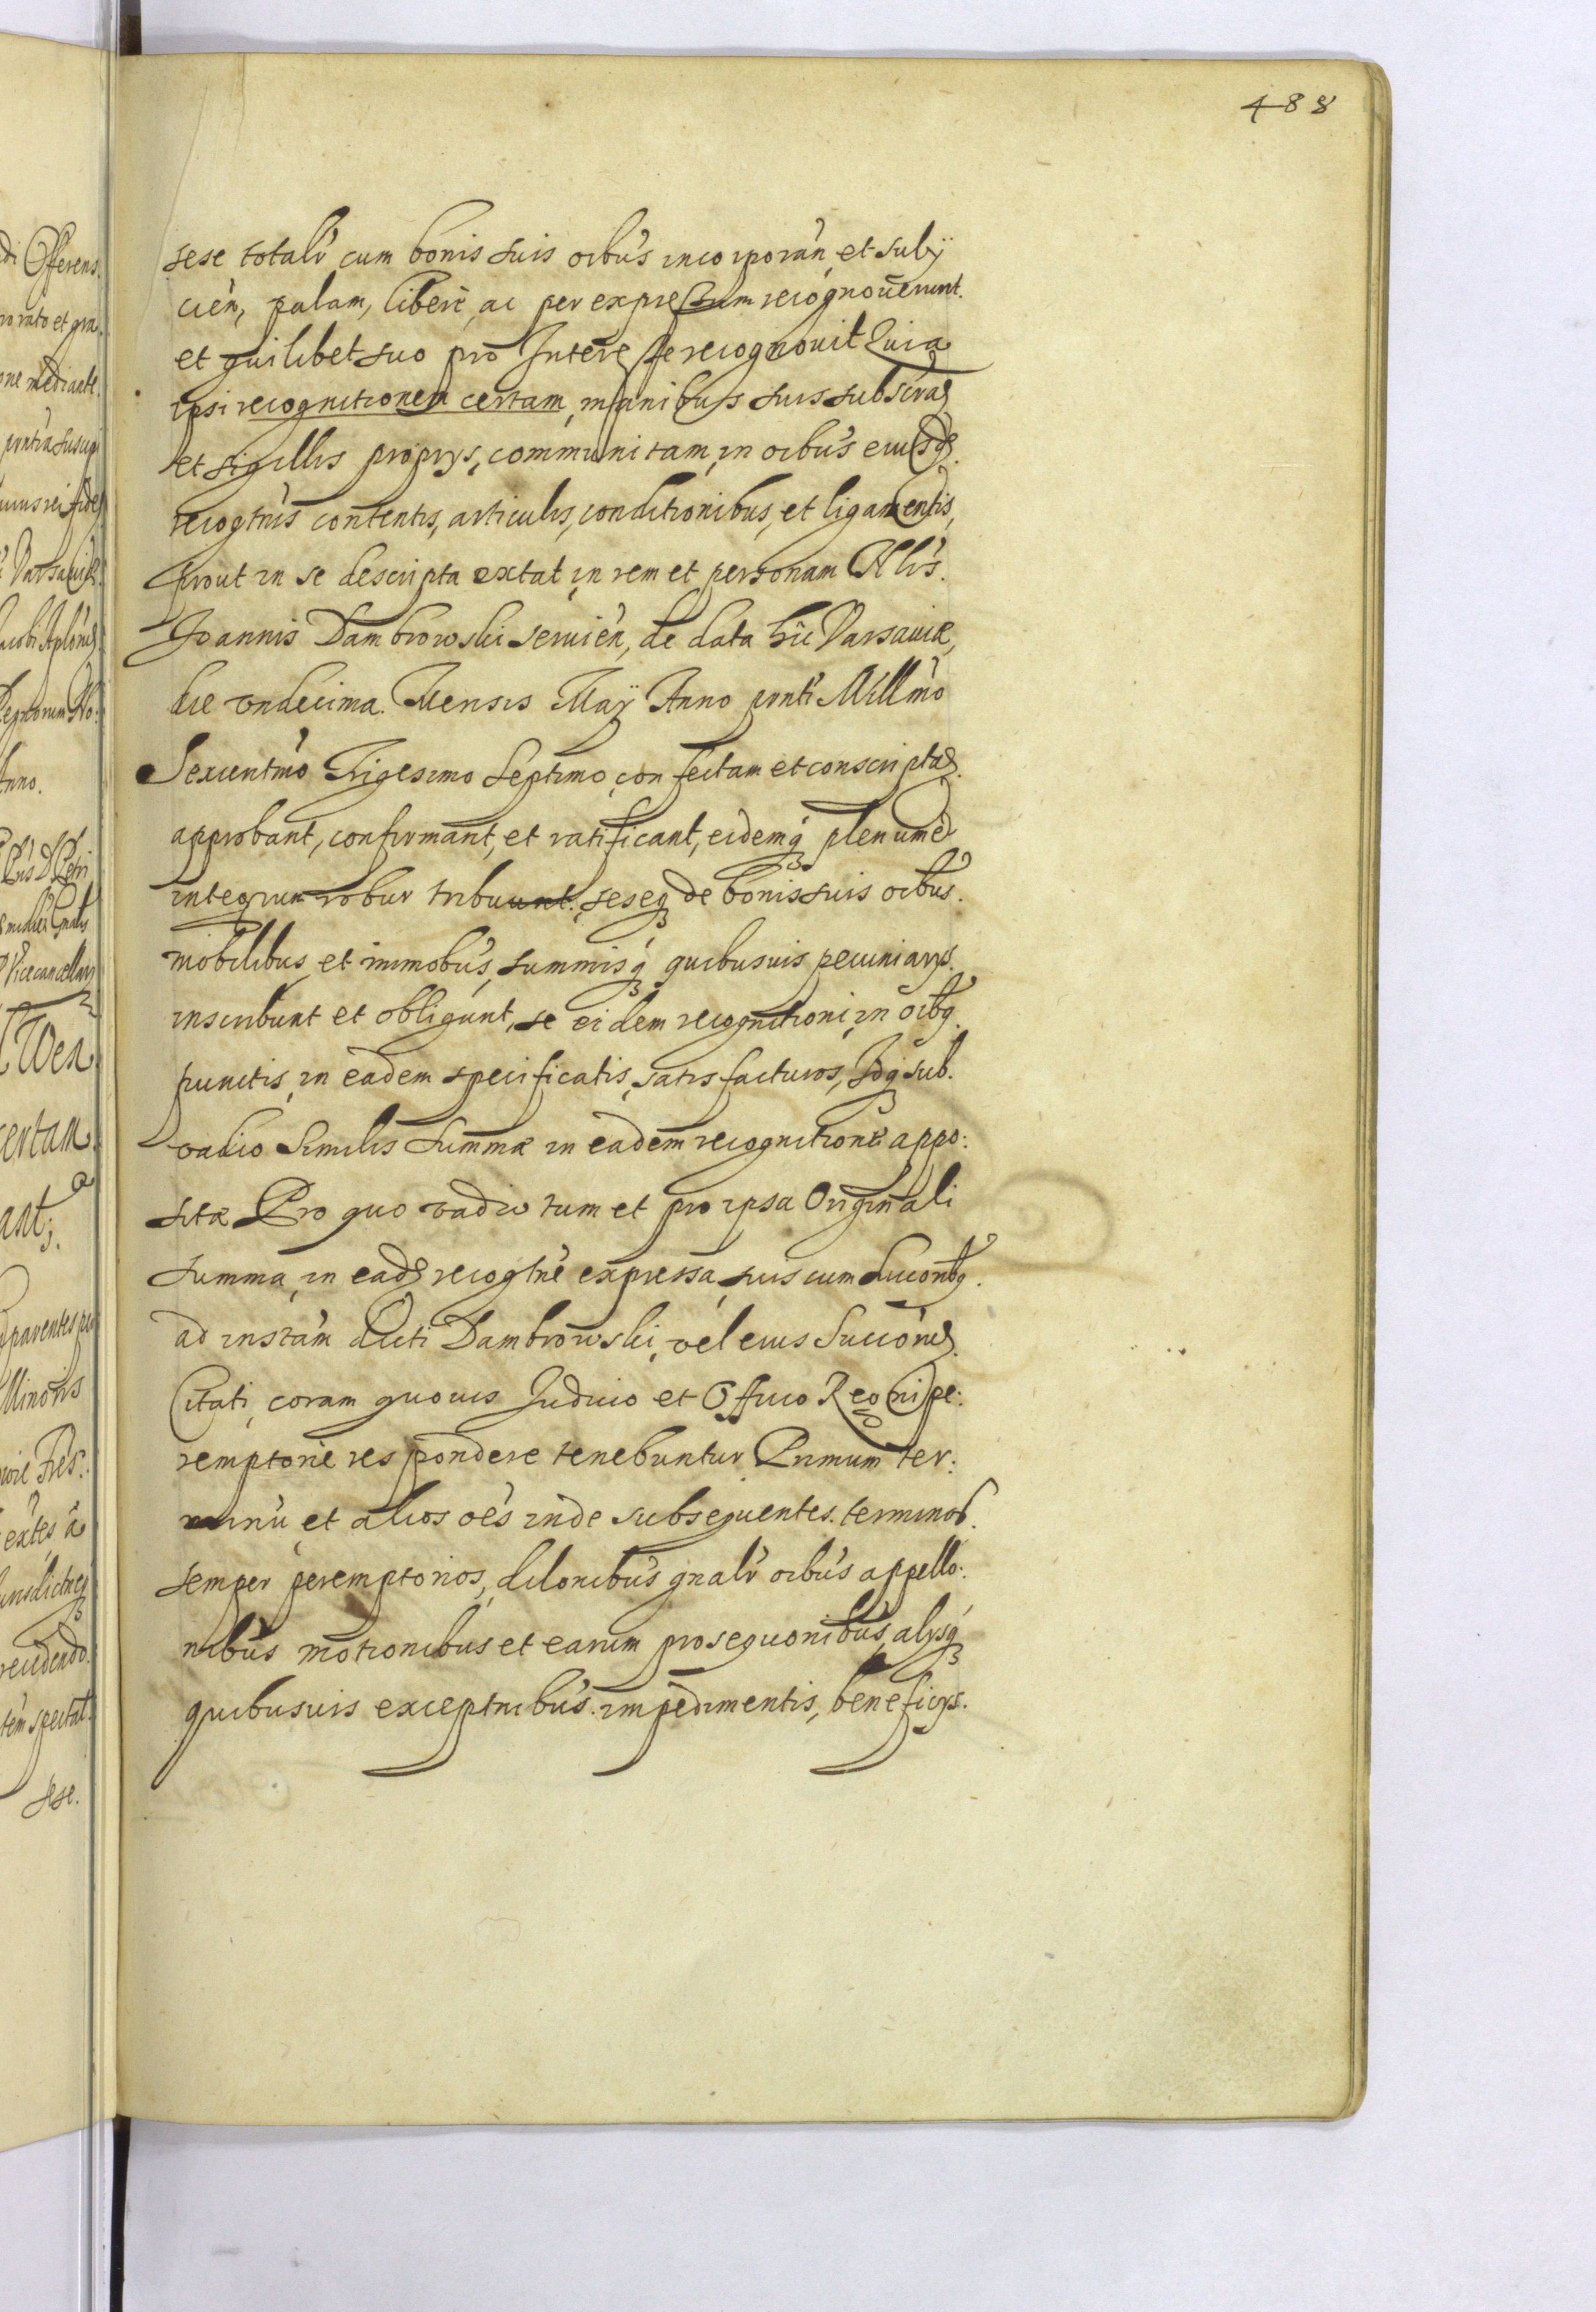 488
sese totalr cum bonis suis oibus incorporan, et subij
cien, palam, libere, ac per expressum recognoverunt.
et quilibet suo pro Interesse recognovit Quia
ipsi recognitionem certam, manibus suis subscrā
et sigillis proprys, communitam, in oibus eiusd.
recogtnis contentis, articulis, conditionibus, et ligamentis,
prout in se descripta extat, in rem et personam Nlis.
Joannis Dambrowski servien, de data hic Varsaviæ,
die vndecima. Mensis Maÿ Anno pnti Millmo
Sexcentmo Trigesimo Septimo, confectam et conscriptā.
approbant, confirmant, et ratificant, eidemq plenum et
integrum robur tribuunt. seseq de bonis suis oibus.
mobilibus, et immobus, summisq quibusuis pecuniarys.
inscribunt et obligunt, se eidem recognitioni, in oibq.
punctis, in eadem specificatis, satisfacturos, Idq sub.
vadio similis summæ in eadem recognitione appo:
sitæ Pro quo vadio tum et pro ipsa Originali
summa, in ead recogtne expressa, suis cum succonbq.
ad instam dicti Dambrowski, vel eius Succones.
Citati, coram quovis Judicio et Officio Regni pe:
remptorie respondere tenebuntur Primum ter:
minu et alios oes inde subsequentes. terminos.
semper peremptorios, dilonibus gnalr oibus appello:
nibus motionibus et earum prosequonibus, alysq
quibusuis exceptnibus. impedimentis, beneficys.
di Offerens.
ro rato et gra.
one mediante.
Varsaviæ.
Anno.
Vicecancellary
Wen
certam
ant;
parentes
Minoris
spectat.
sese.